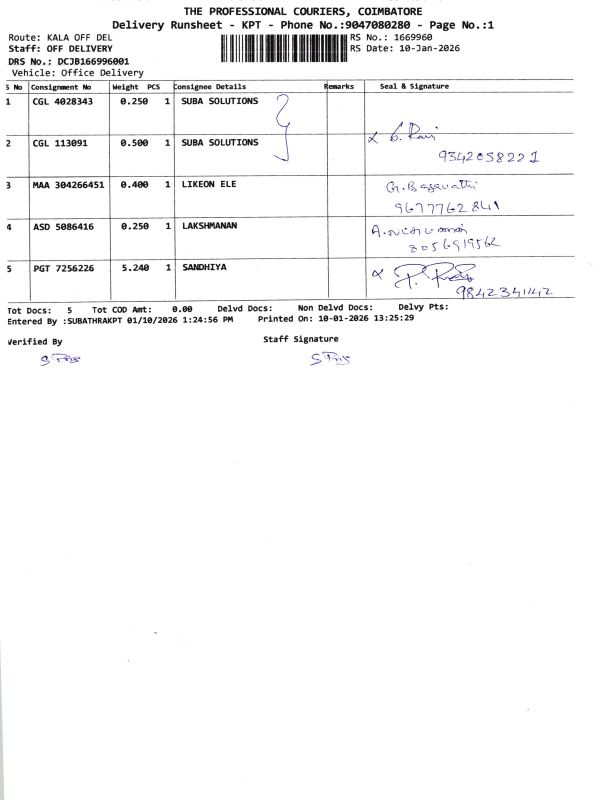 THE PROFESSIONAL COURIERS, COIMBATORE
Delivery Runsheet - KPT - Phone No.:9047080280 - Page No.:1
Route: KALA OFF DEL
RS No.: 1669960
Staff: OFF DELIVERY
RS Date: 10-Jan-2026
DRS No.: DCJB166996001
Vehicle: Office Delivery
S No Consignment No Weight PCS Consignee Details Remarks Seal & Signature
1 CGL 4028343 0.250 1 SUBA SOLUTIONS
2 CGL 113091 0.500 1 SUBA SOLUTIONS
9342058221
3 MAA 304266451 0.400 1 LIKEON ELE G.Bagavathi
9677762841
4 ASD 5086416 0.250 1 LAKSHMANAN
8056919562
5 PGT 7256226 5.240 1 SANDHIYA
9842341142
Tot Docs: 5 Tot COD Amt: 0.00 Delvd Docs: Non Delvd Docs: Delvy Pts:
Entered By :SUBATHRAKPT 01/10/2026 1:24:56 PM Printed On: 10-01-2026 13:25:29
Verified By Staff Signature